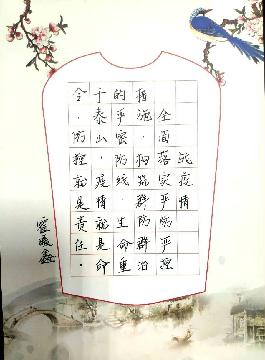 战疫情
全面落实严防严控
措施,构筑群防群治
的严密防线.生命重
于泰山.疫情就是命
令.防控就是责任.